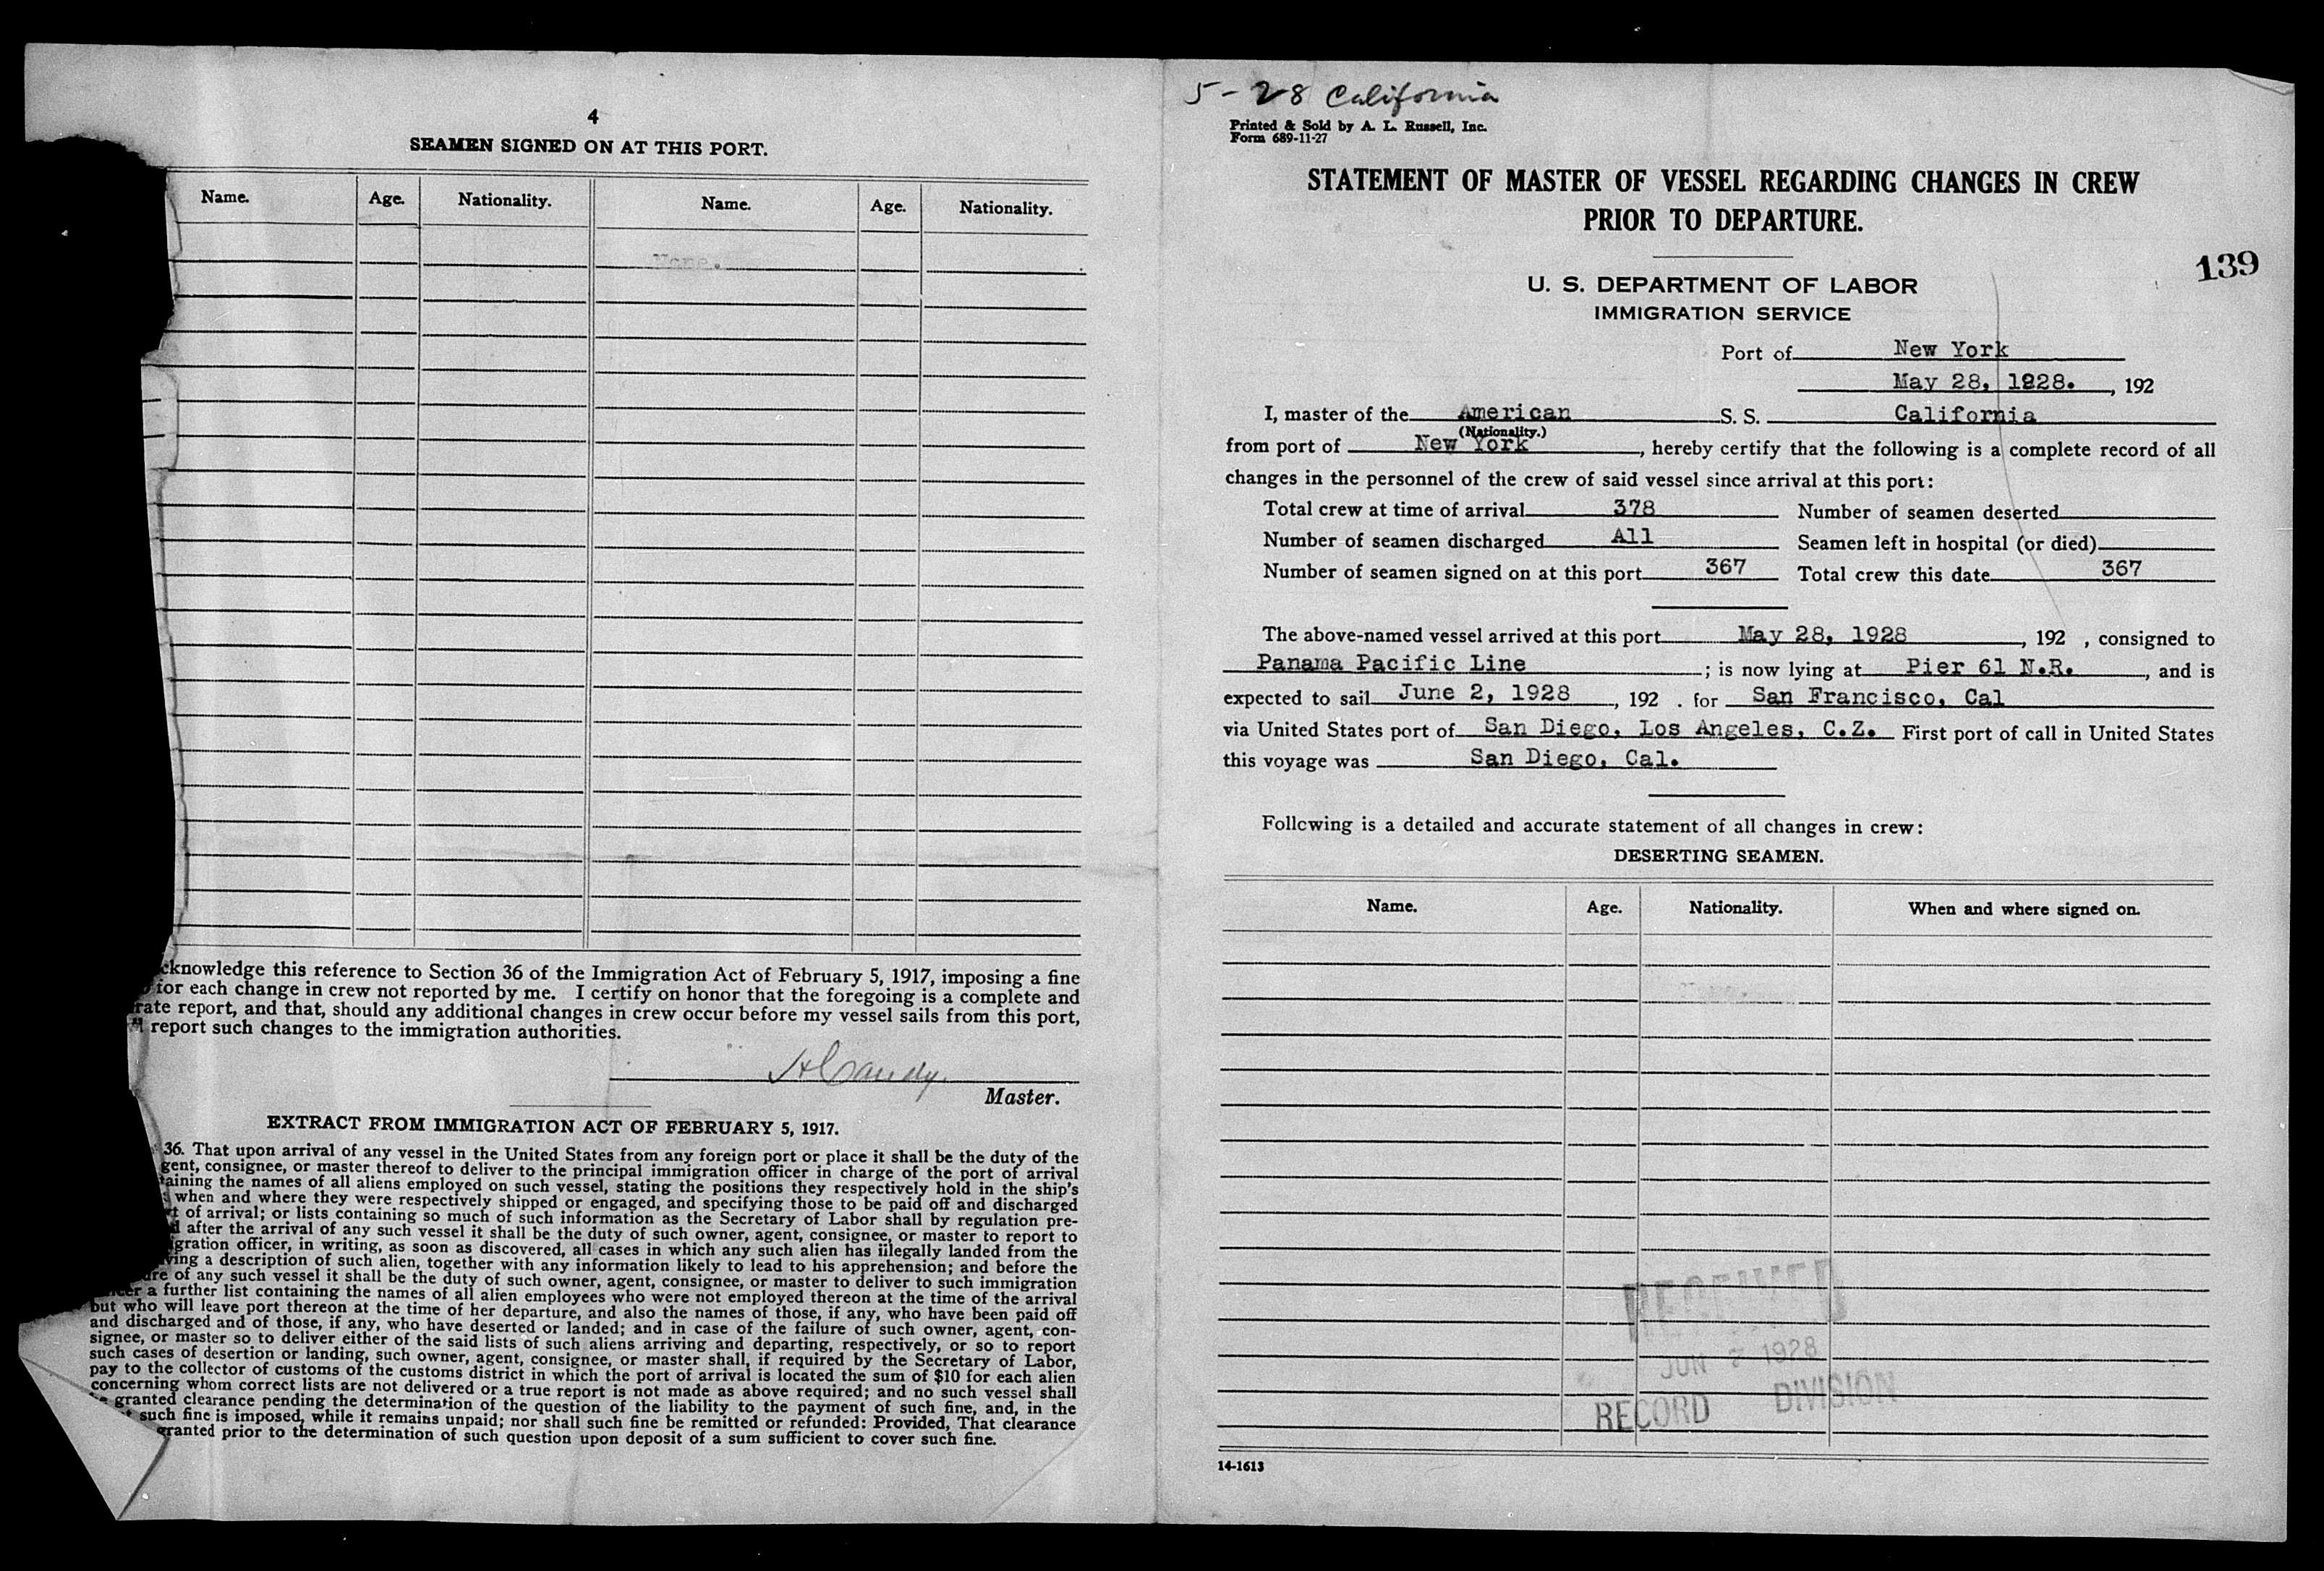 4
SEAMEN SIGNED ON AT THIS PORT.
Name. Age. Nationality. Name. Age. Nationality.
None.
cknowledge this reference to Section 36 of the Immigration Act of February 5, 1917, imposing a fine
for each change in crew not reported by me. I certify on honor that the foregoing is a complete and
rate report, and that, should any additional changes in crew occur before my vessel sails from this port,
report such changes to the immigration authorities.
H Candy.
Master.
EXTRACT FROM IMMIGRATION ACT OF FEBRUARY 5, 1917.
36. That upon arrival of any vessel in the United States from any foreign port or place it shall be the duty of the
gent, consignee, or master thereof to deliver to the principal immigration officer in charge of the port of arrival
taining the names of all aliens employed on such vessel, stating the positions they respectively hold in the ship's
when and where they were respectively shipped or engaged, and specifying those to be paid off and discharged
t of arrival; or lists containing so much of such information as the Secretary of Labor shall by regulation pre-
d after the arrival of any such vessel it shall be the duty of such owner, agent, consignee, or master to report to
igration officer, in writing, as soon as discovered, all cases in which any such alien has illegally landed from the
ving a description of such alien, together with any information likely to lead to his apprehension; and before the
ure of any such vessel it shall be the duty of such owner, agent, consignee, or master to deliver to such immigration
icer a further list containing the names of all alien employees who were not employed thereon at the time of the arrival
but who will leave port thereon at the time of her departure, and also the names of those, if any, who have been paid off
and discharged and of those, if any, who have deserted or landed; and in case of the failure of such owner, agent, con-
signee, or master so to deliver either of the said lists of such aliens arriving and departing, respectively, or so to report
such cases of desertion or landing, such owner, agent, consignee, or master shall, if required by the Secretary of Labor,
pay to the collector of customs of the customs district in which the port of arrival is located the sum of $10 for each alien
concerning whom correct lists are not delivered or a true report is not made as above required; and no such vessel shall
e granted clearance pending the determination of the question of the liability to the payment of such fine, and, in the
such fine is imposed, while it remains unpaid; nor shall such fine be remitted or refunded: Provided, That clearance
granted prior to the determination of such question upon deposit of a sum sufficient to cover such fine.
5-28 California
Printed & Sold by A. L. Russell, Inc.
Form 689-11-27
STATEMENT OF MASTER OF VESSEL REGARDING CHANGES IN CREW
PRIOR TO DEPARTURE.
139
U. S. DEPARTMENT OF LABOR
IMMIGRATION SERVICE
Port of New York
May 28, 1928. , 192
I, master of the American S. S. California
(Nationality.)
from port of New York , hereby certify that the following is a complete record of all
changes in the personnel of the crew of said vessel since arrival at this port:
Total crew at time of arrival 378 Number of seamen deserted
Number of seamen discharged All Seamen left in hospital (or died)
Number of seamen signed on at this port 367 Total crew this date 367
The above-named vessel arrived at this port May 28, 1928 , 192 , consigned to
Panama Pacific Line ; is now lying at Pier 61 N.R. , and is
expected to sail June 2, 1928 , 192 . for San Francisco, Cal
via United States port of San Diego, Los Angeles, C.Z. First port of call in United States
this voyage was San Diego, Cal.
Following is a detailed and accurate statement of all changes in crew:
DESERTING SEAMEN.
Name. Age. Nationality. When and where signed on.
RECEIVED
JUN 1928
RECORD DIVISION
14-1613